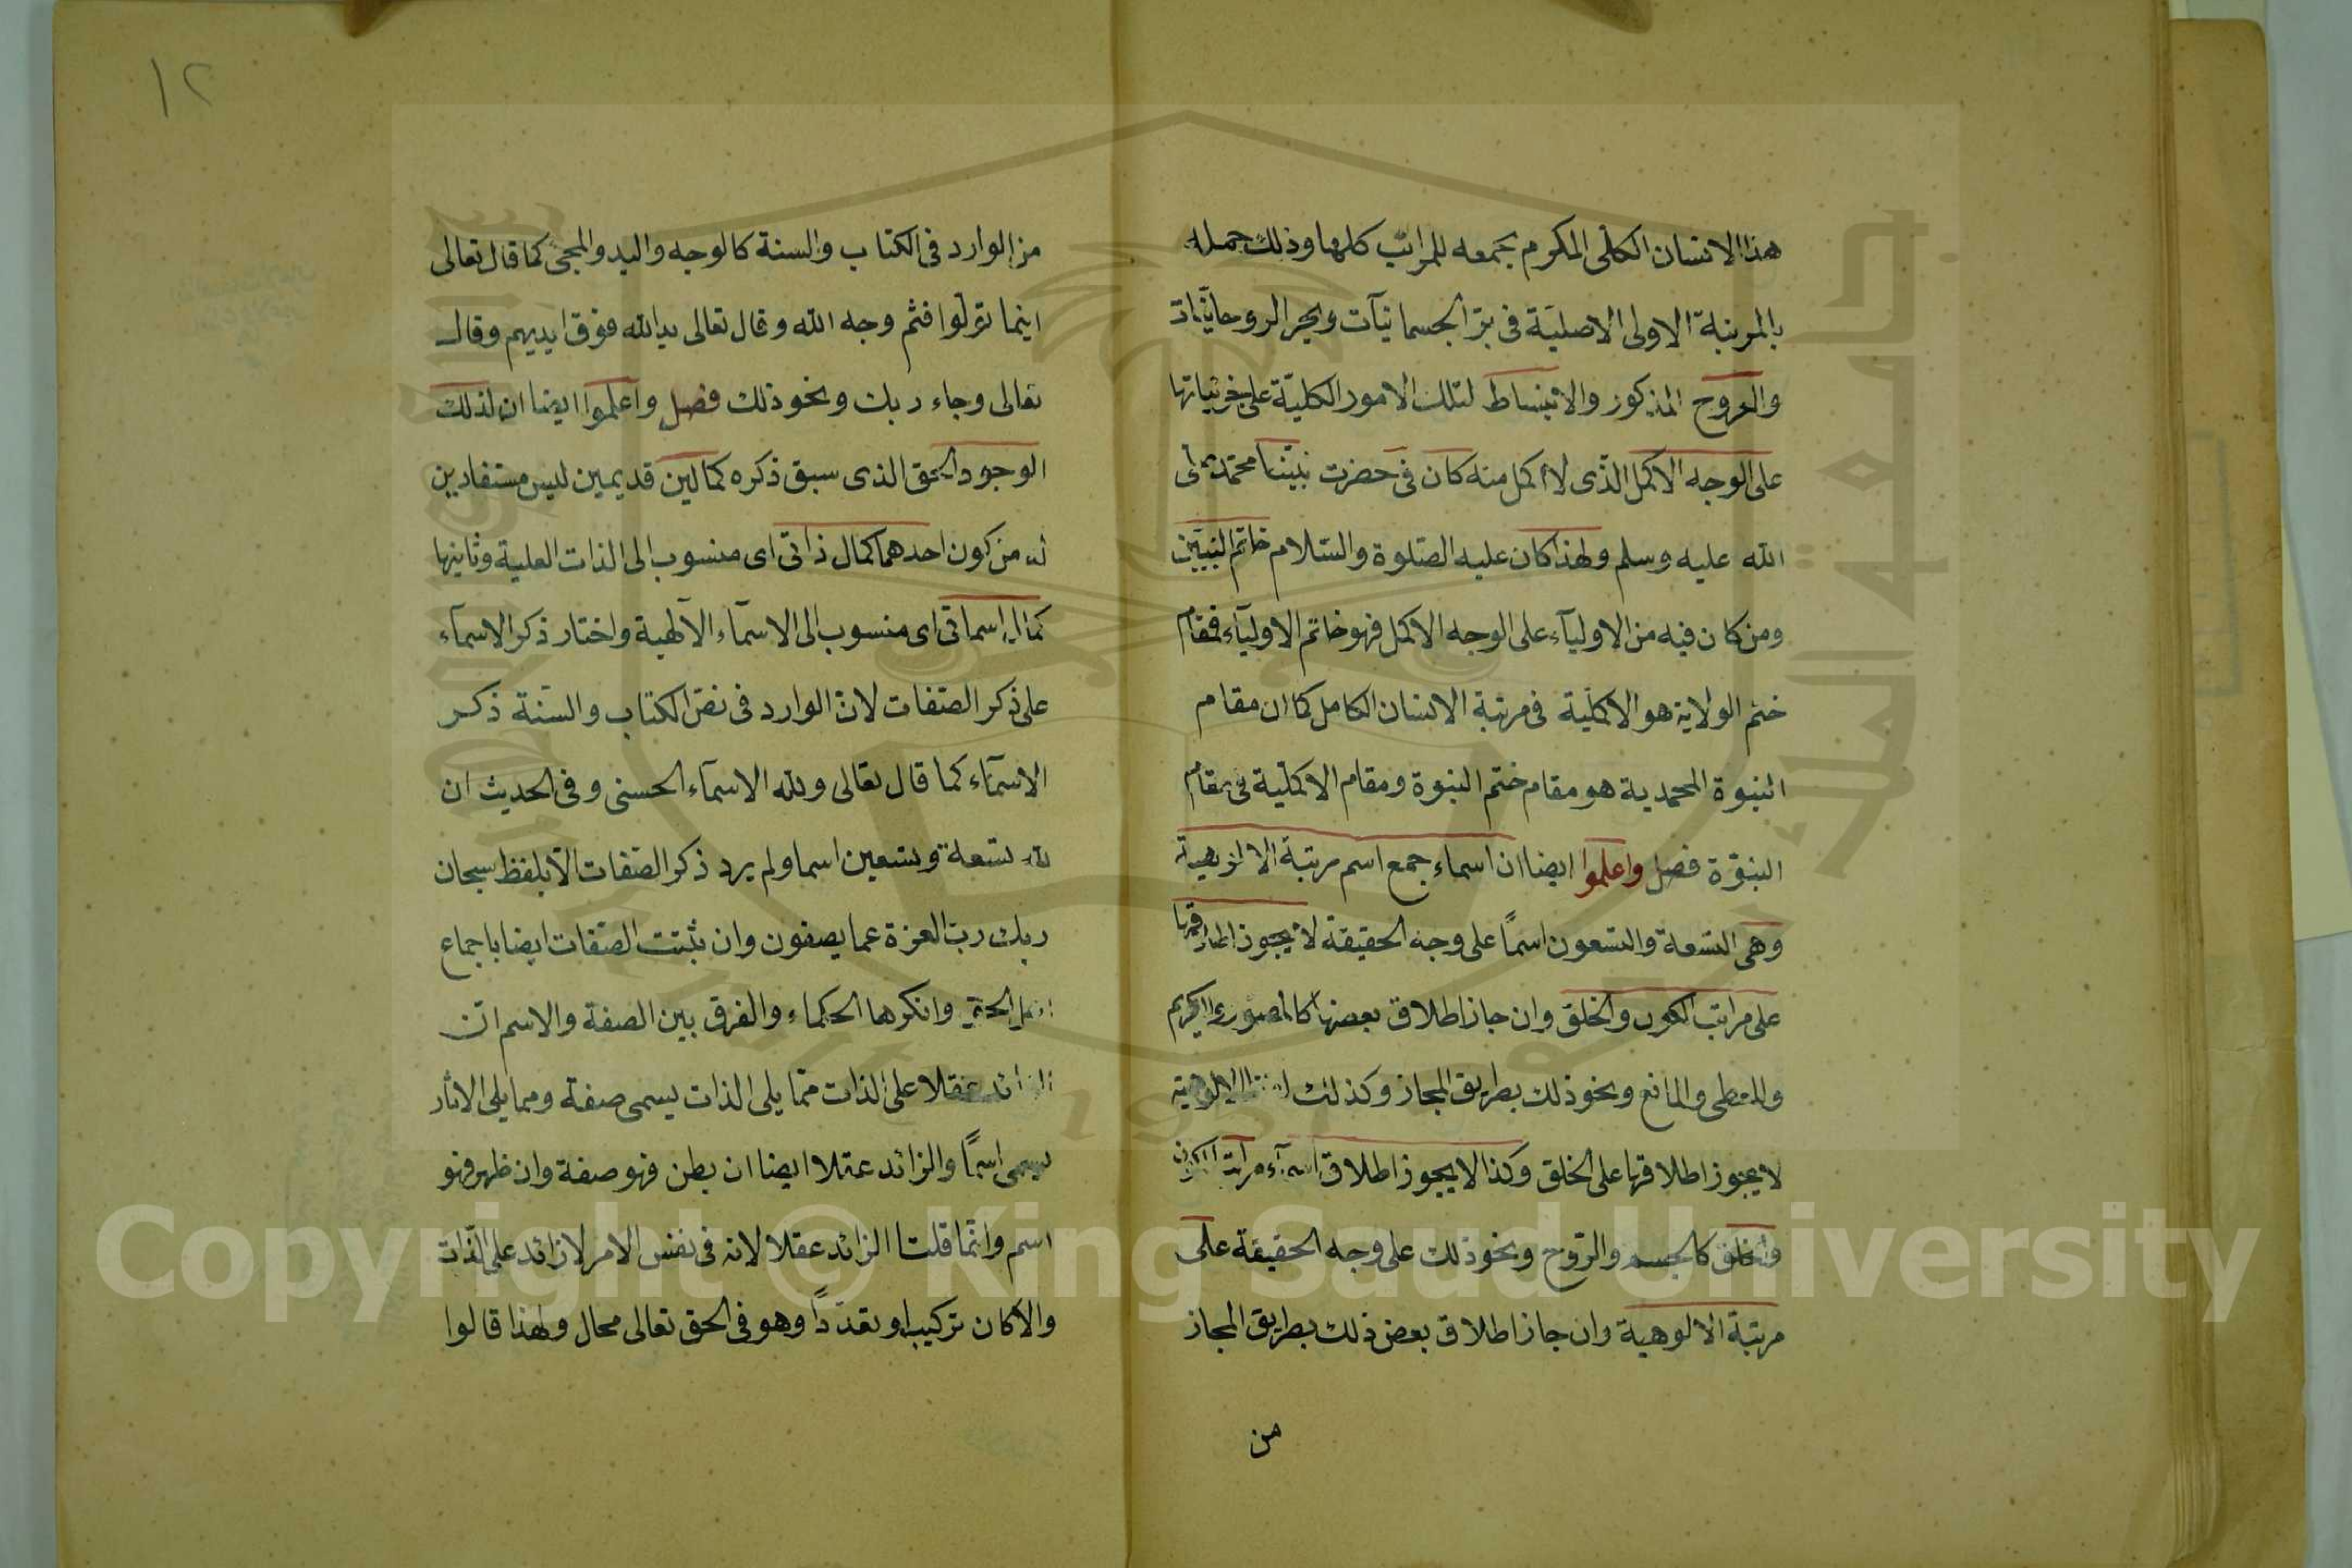 هذا الانسان الكلى المكرم بجمعه للمراتب كلها وذلك حمله
بالمرتبة الاولى الاصلية فى بر الجسمانيات وبحر الروحانيات
والعروج المذكور والانبساط لتلك الامور الكلية على جزئياتها
على الوجه الاكمل الذى لا اكمل منه كان فى حضرت نبينا محمد صلى
الله عليه وسلم ولهذا كان عليه الصلوة والسلام خاتم النبيين
ومن كان فيه من الاوليآء على الوجه الاكمل فهو خاتم الاوليآء فمقام
ختم الولاية هو الاكملية فى مرتبة الانسان الكامل كما ان مقام
النبوة المحمدية هو مقام ختم النبوة ومقام الاكملية فى مقام
النبوة فصل واعلموا ايضا ان اسماء جمع اسم مرتبة الالوهية
وهى التسعة والتسعون اسماً على وجه الحقيقة لا يجوز اطلاقها
على مراتب الكون والخلق وان جاز اطلاق بعضها كالمصور والكريم
والمعطى والمانع ونحو ذلك بطريق المجاز وكذلك الالوهية
لا يجوز اطلاقها على الخلق وكذا لا يجوز اطلاق اسمآء مراتب الكون
والخلق كالجسم والروح ونحو ذلك على وجه الحقيقة على
مرتبة الالوهية وان جاز اطلاق بعض ذلك بطريق المجاز
من
١٢
من الوارد فى الكتاب والسنة كالوجه واليد والمجئ كما قال تعالى
اينما تولوا فثم وجه الله وقال تعالى يد الله فوق ايديهم وقال
تعالى وجاء ربك ونحو ذلك فصل واعلموا ايضا ان لذلك
الوجود الحق الذى سبق ذكره كمالين قديمين ليس مستفادين
له من كون احدهما كمال ذاتى اى منسوب الى الذات العلية وثانيها
كمال اسمائى اى منسوب الى الاسمآء الآلهية واختار ذكر الاسمآء
على ذكر الصفات لان الوارد فى نص الكتاب والسنة ذكر
الاسمآء كما قال تعالى ولله الاسمآء الحسنى وفى الحديث ان
لله تسعة وتسعين اسما ولم يرد ذكر الصفات الا بلفظ سبحان
ربك رب العزة عما يصفون وان ثبتت الصفات ايضا باجماع
اهل الحق وانكرها الحكماء والفرق بين الصفة والاسم ان
الزائد عقلا على الذات مما يلى الذات يسمى صفة ومما يلى الاثار
يسمى اسماً والزائد عقلا ايضا ان بطن فهو صفة وان ظهر فهو
اسم وانما قلنا الزائد عقلا لانه فى نفس الامر لا زائد على الذات
والا كان تركيبا وتعدداً وهو فى الحق تعالى محال ولهذا قالوا
Copyright © King Saud University